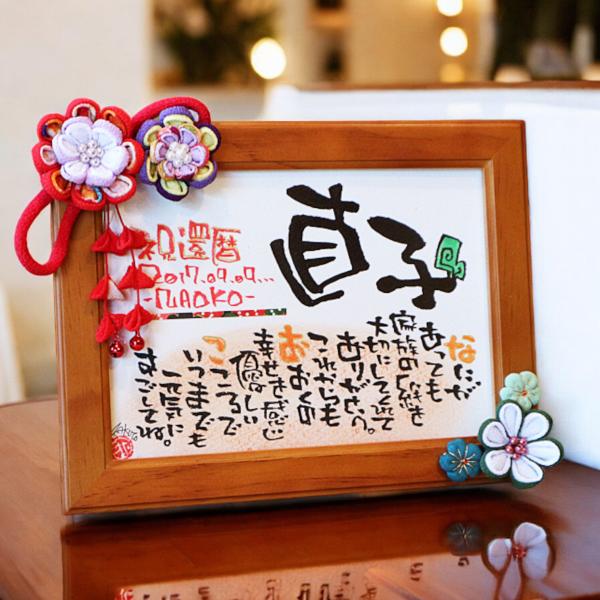 直子
祝還暦
2017.09.09...
-NAOKO-
なにが
あっても
家族の「絆」を
大切にしてくれて
ありがとう。
これからも
おおくの
幸せを感じ
優しい
こころで
いつまでも
元気に
すごしてね。